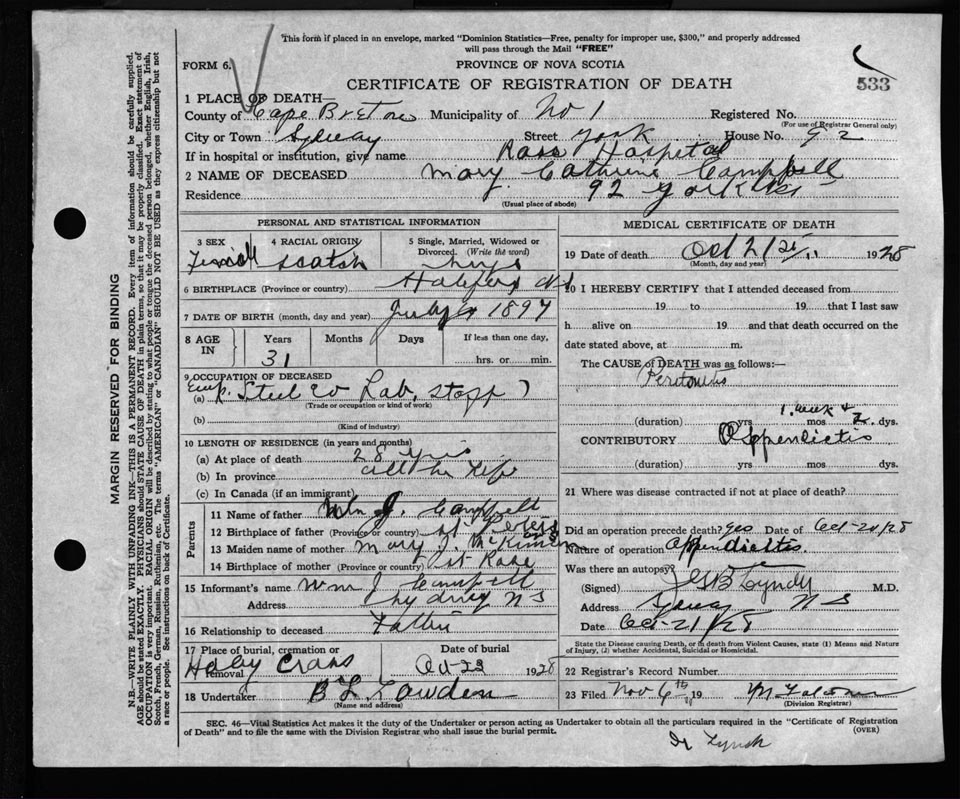 This form if placed in an envelope, marked "Dominion Statistics—Free, penalty for improper use, $300," and properly addressed
will pass through the Mail "FREE"
FORM 6.
PROVINCE OF NOVA SCOTIA
533
CERTIFICATE OF REGISTRATION OF DEATH
1 PLACE OF DEATH—
County of Cape Breton Municipality of No 1 Registered No.
(For use of Registrar General only)
City or Town Sydney Street York House No. 92
If in hospital or institution, give name Ross Hospital
2 NAME OF DECEASED Mary Cathrine Campbell
Residence 92 York St
(Usual place of abode)
PERSONAL AND STATISTICAL INFORMATION
3 SEX 4 RACIAL ORIGIN 5 Single, Married, Widowed or Divorced. (Write the word)
Scotch
6 BIRTHPLACE (Province or country) Halifax NS
7 DATE OF BIRTH (month, day and year) July 1897
8 AGE IN Years Months Days If less than one day,
31 hrs. or min.
9 OCCUPATION OF DECEASED
(a) Steel Co Lab.
(Trade or occupation or kind of work)
(b)
(Kind of industry)
10 LENGTH OF RESIDENCE (in years and months)
(a) At place of death 28 yrs
(b) In province all her life
(c) In Canada (if an immigrant)
Parents
11 Name of father Wm J. Campbell
12 Birthplace of father (Province or country) St Peters
13 Maiden name of mother Mary J. McKinnon
14 Birthplace of mother (Province or country) St Rose
15 Informant's name Wm J Campbell
Address Sydney N S
16 Relationship to deceased Father
17 Place of burial, cremation or removal Date of burial
Holy Cross Oct-23 1928
18 Undertaker
(Name and address)
MEDICAL CERTIFICATE OF DEATH
19 Date of death Oct 21st 1928
(Month, day and year)
20 I HEREBY CERTIFY that I attended deceased from
19 to 19 that I last saw
h alive on 19 and that death occurred on the
date stated above, at m.
The CAUSE of DEATH was as follows:—
Peritonitis
(duration) yrs 1 week & 2 mos dys.
CONTRIBUTORY Appendictis
(duration) yrs mos dys.
21 Where was disease contracted if not at place of death?
Did an operation precede death? yes Date of Oct-20/28
Nature of operation appendicitis.
Was there an autopsy?
(Signed) M.D.
Address Sydney N S
Date Oct-21/28
State the Disease causing Death, or in death from Violent Causes, state (1) Means and Nature
of Injury, (2) whether Accidental, Suicidal or Homicidal.
22 Registrar's Record Number
23 Filed Nov 6th 19
(Division Registrar)
SEC. 46—Vital Statistics Act makes it the duty of the Undertaker or person acting as Undertaker to obtain all the particulars required in the "Certificate of Registration
of Death" and to file the same with the Division Registrar who shall issue the burial permit.
(OVER)
Dr Lynch
MARGIN RESERVED FOR BINDING
N.B.—WRITE PLAINLY WITH UNFADING INK—THIS IS A PERMANENT RECORD. Every item of information should be carefully supplied.
AGE should be stated EXACTLY. PHYSICIANS should STATE CAUSE OF DEATH in plain terms, so that it may be properly classified. Exact statement of
OCCUPATION is very important. RACIAL ORIGIN will be described by stating to what people or tongue the deceased person belonged, whether English, Irish,
Scotch, French, German, Russian, Ruthenian, etc. The terms "AMERICAN" or "CANADIAN" SHOULD NOT BE USED as they express citizenship but not
a race or people. See instructions on back of Certificate.